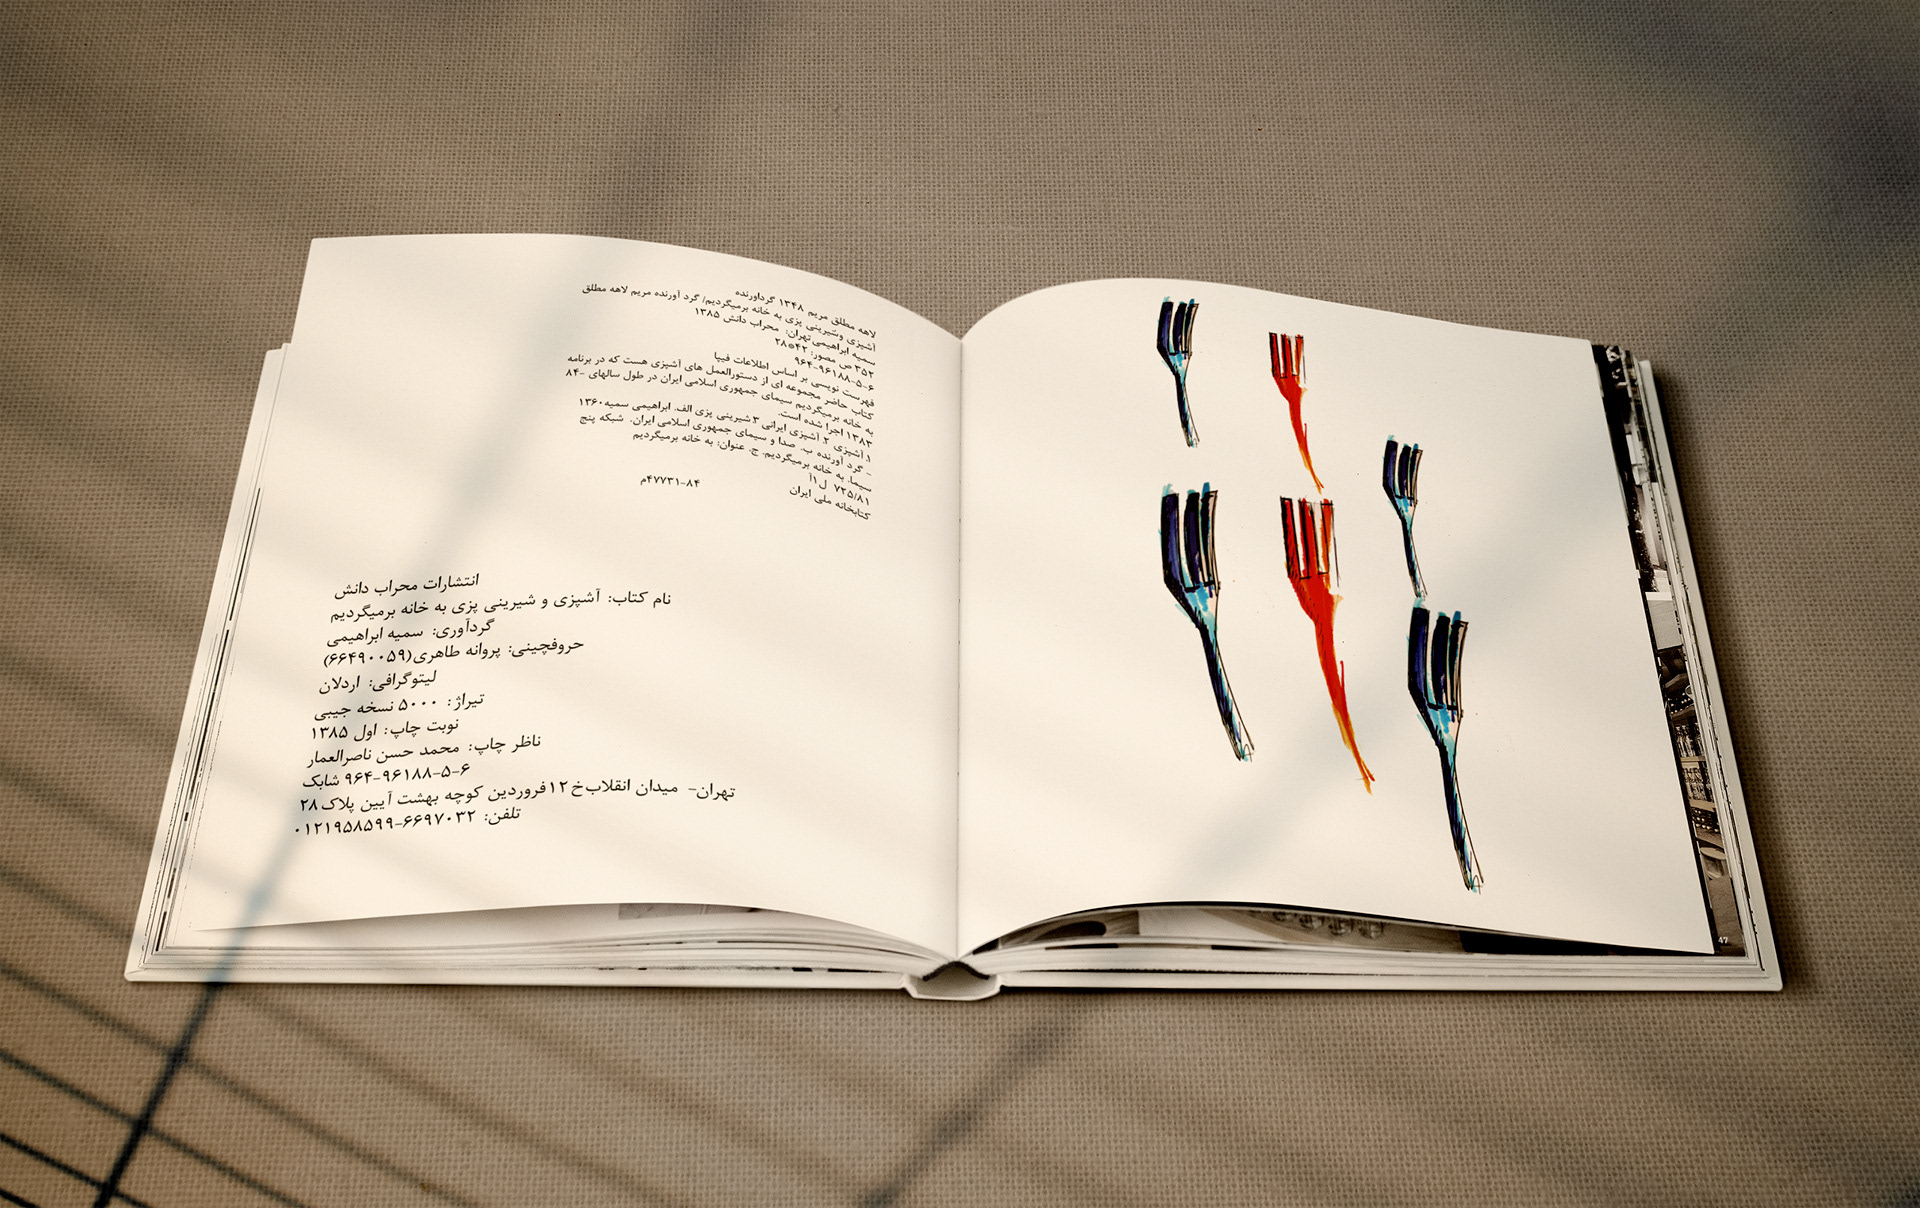 لاهه مطلق مریم ۱۳۴۸ گرداورنده
آشپزی وشیرینی پزی به خانه برمیگردیم/ گرد آورنده مریم لاهه مطلق
سمیه ابراهیمی تهران: محراب دانش ۱۳۸۵
۳۵۲ ص مصور: ۴۲*۲۸
۹۶۴-۹۶۱۸۸-۵-۶
فهرست نویسی بر اساس اطلاعات فیپا
کتاب حاضر مجموعه ای از دستورالعمل های آشپزی هست که در برنامه
به خانه برمیگردیم سیمای جمهوری اسلامی ایران در طول سالهای -۸۴
۱۳۸۳ اجرا شده است.
۱. آشپزی ۲. آشپزی ایرانی ۳.شیرینی پزی الف. ابراهیمی سمیه۱۳۶۰
- گرد آورنده ب. صدا و سیمای جمهوری اسلامی ایران. شبکه پنج
سیما. به خانه برمیگردیم. ج. عنوان: به خانه برمیگردیم
۷۲۵/۸۱ ل۱آ
کتابخانه ملی ایران ۸۴-۴۷۷۳۱م
انتشارات محراب دانش
نام کتاب: آشپزی و شیرینی پزی به خانه برمیگردیم
گردآوری: سمیه ابراهیمی
حروفچینی: پروانه طاهری(۶۶۴۹۰۰۵۹)
لیتوگرافی: اردلان
تیراژ: ۵۰۰۰ نسخه جیبی
نوبت چاپ: اول ۱۳۸۵
ناظر چاپ: محمد حسن ناصرالعمار
۹۶۴-۹۶۱۸۸-۵-۶ شابک
تهران- میدان انقلاب‌خ ۱۲فروردین کوچه بهشت آیین پلاک۲۸
تلفن: ۶۶۹۷۰۳۲-۰۱۲۱۹۵۸۵۹۹
47